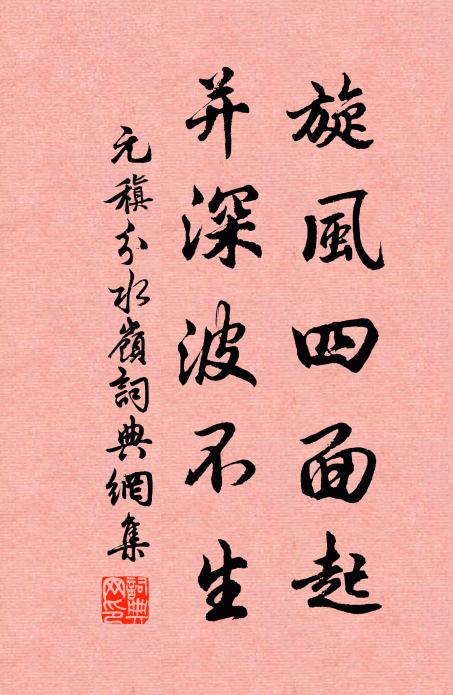 旋風四面起
并深波不生
元稹分水嶺詞典網集
詞典网印